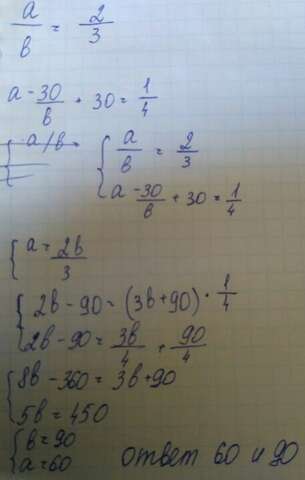 a/в = 2/3
a - 30/в + 30 = 1/4
a/в
{ a/в = 2/3
a - 30/в + 30 = 1/4
{ a = 2в/3
{ 2в - 90 = (3в + 90) · 1/4
2в - 90 = 3в/4 + 90/4
{ 8в - 360 = 3в + 90
5в = 450
{ в = 90
a = 60 ответ 60 и 90